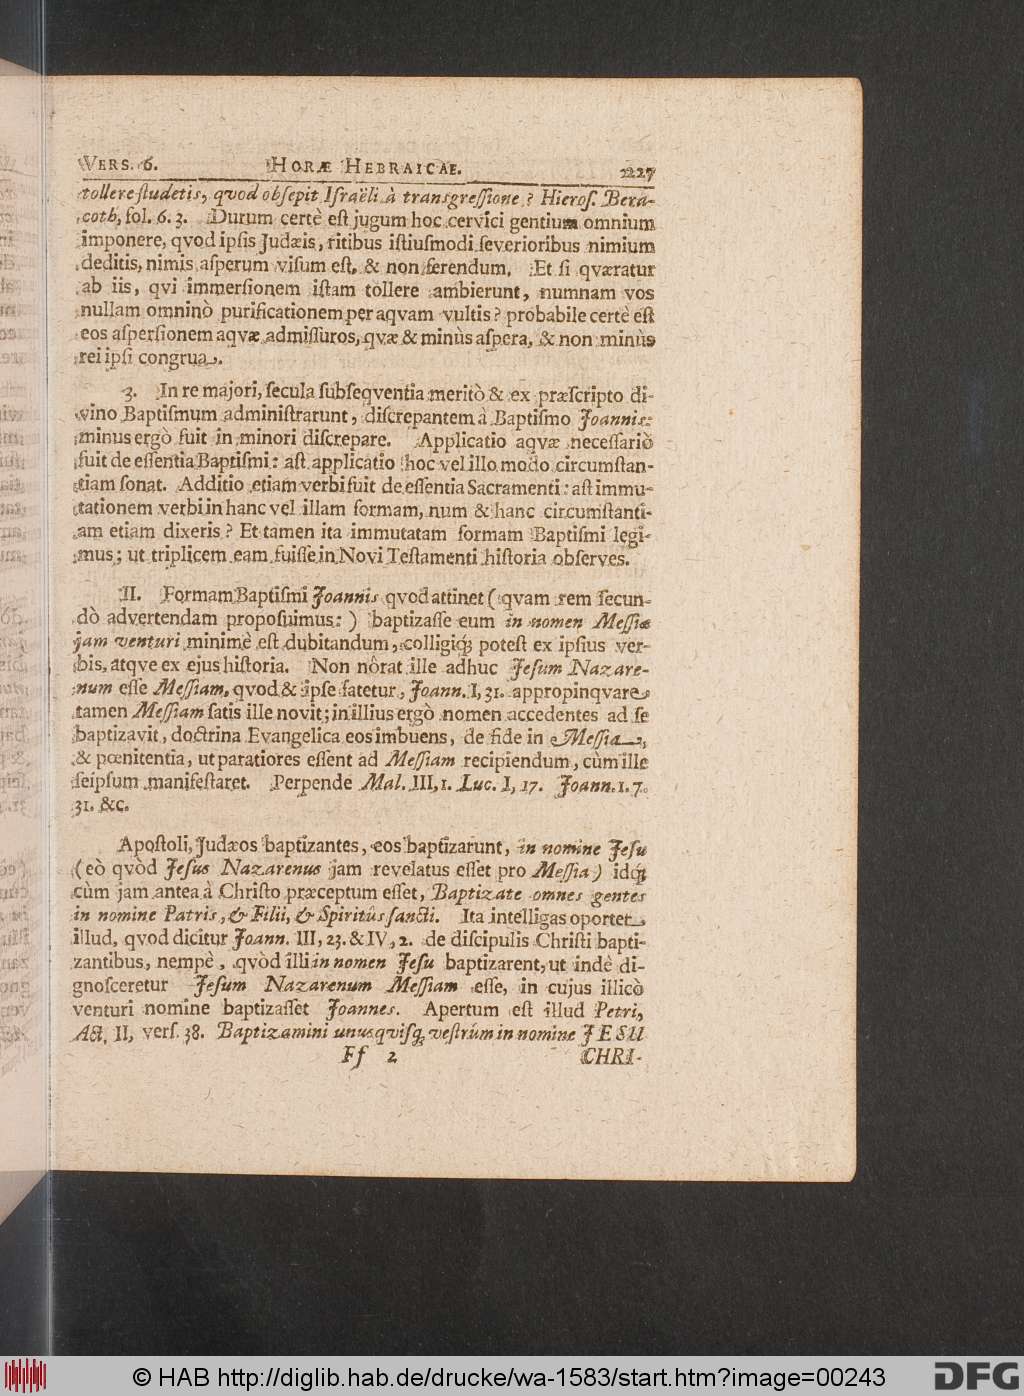 VERS. 6. HORÆ HEBRAICAE. 227
tollere studetis, qvod obsepit Israëli à transgressione? Hieros. Bera-
coth, fol. 6. 3. Durum certè est jugum hoc cervici gentium omnium
imponere, qvod ipsis Judæis, ritibus istiusmodi severioribus nimium
deditis, nimis asperum visum est, & non ferendum. Et si qværatur
ab iis, qvi immersionem istam tollere ambierunt, numnam vos
nullam omninò purificationem per aqvam vultis? probabile certè est
eos aspersionem aqvæ admissuros, qvæ & minùs aspera, & non minùs
rei ipsi congrua.
3. In re majori, secula subseqventia meritò & ex præscripto di-
vino Baptismum administrarunt, discrepantem à Baptismo Joannis:
minus ergò fuit in minori discrepare. Applicatio aqvæ necessariò
fuit de essentia Baptismi: ast applicatio hoc vel illo modo circumstan-
tiam sonat. Additio etiam verbi fuit de essentia Sacramenti: ast immu-
tationem verbi in hanc vel illam formam, num & hanc circumstanti-
am etiam dixeris? Et tamen ita immutatam formam Baptismi legi-
mus; ut triplicem eam fuisse in Novi Testamenti historia observes.
II. Formam Baptismi Joannis qvod attinet (qvam rem secun-
dò advertendam proposuimus:) baptizasse eum in nomen Messiæ
jam venturi minimè est dubitandum, colligiq́; potest ex ipsius ver-
bis, atqve ex ejus historia. Non nôrat ille adhuc Jesum Nazare-
num esse Messiam, qvod & ipse fatetur, Joann. I, 31. appropinqvare
tamen Messiam satis ille novit; in illius ergò nomen accedentes ad se
baptizavit, doctrina Evangelica eos imbuens, de fide in Messia,
& pœnitentia, ut paratiores essent ad Messiam recipiendum, cùm ille
seipsum manifestaret. Perpende Mal. III, 1. Luc. I, 17. Joann. 1. 7.
31. &c.
Apostoli, Judæos baptizantes, eos baptizarunt, in nomine Jesu
(eò qvòd Jesus Nazarenus jam revelatus esset pro Messia) idq́;
cùm jam antea à Christo præceptum esset, Baptizate omnes gentes
in nomine Patris, & Filii, & Spiritûs sancti. Ita intelligas oportet
illud, qvod dicitur Joann. III, 23. & IV, 2. de discipulis Christi bapti-
zantibus, nempè, qvòd illi in nomen Jesu baptizarent, ut indè di-
gnosceretur Jesum Nazarenum Messiam esse, in cujus illicò
venturi nomine baptizasset Joannes. Apertum est illud Petri,
Act. II, vers. 38. Baptizamini unusqvisq; vestrûm in nomine JESU
Ff 2 CHRI-
© HAB http://diglib.hab.de/drucke/wa-1583/start.htm?image=00243 DFG